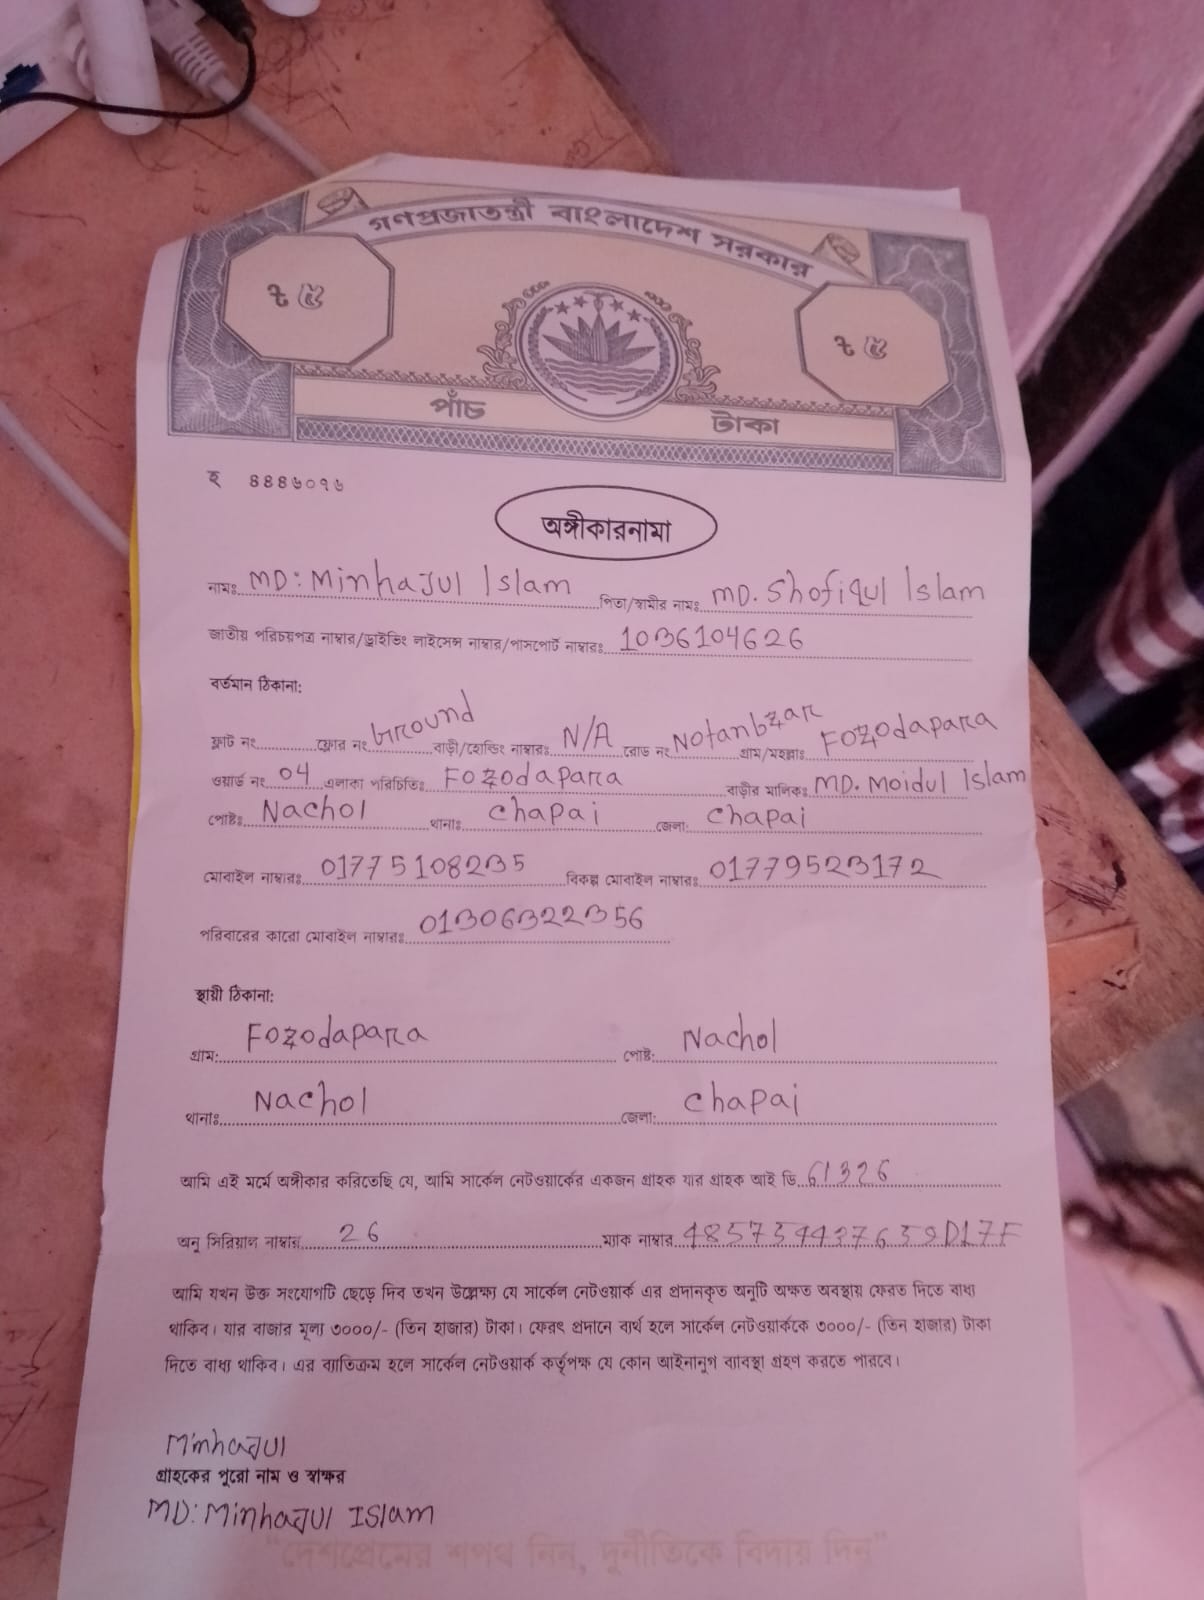 গণপ্রজাতন্ত্রী বাংলাদেশ সরকার
৳ ৫ ৳ ৫
পাঁচ টাকা
হ ৪৪৪৬০৭৬
অঙ্গীকারনামা
নামঃ MD: Minhajul Islam পিতা/স্বামীর নামঃ MD. Shofiqul Islam
জাতীয় পরিচয়পত্র নাম্বার/ড্রাইভিং লাইসেন্স নাম্বার/পাসপোর্ট নাম্বারঃ 1036104626
বর্তমান ঠিকানা:
ফ্লাট নং ফ্লোর নং Ground বাড়ী/হোল্ডিং নাম্বারঃ N/A রোড নং Notanbzar গ্রাম/মহল্লাঃ Fozodapara
ওয়ার্ড নং 04 এলাকা পরিচিতিঃ Fozodapara বাড়ীর মালিকঃ MD. Moidul Islam
পোষ্টঃ Nachol থানাঃ Chapai জেলা: Chapai
মোবাইল নাম্বারঃ 01775108235 বিকল্প মোবাইল নাম্বারঃ 01779523172
পরিবারের কারো মোবাইল নাম্বারঃ 01306322356
স্থায়ী ঠিকানা:
গ্রাম: Fozodapara পোষ্ট: Nachol
থানাঃ Nachol জেলা: Chapai
আমি এই মর্মে অঙ্গীকার করিতেছি যে, আমি সার্কেল নেটওয়ার্কের একজন গ্রাহক যার গ্রাহক আই ডি 61326
অনু সিরিয়াল নাম্বার 26 ম্যাক নাম্বার 485754437659D17F
আমি যখন উক্ত সংযোগটি ছেড়ে দিব তখন উল্লেক্ষ্য যে সার্কেল নেটওয়ার্ক এর প্রদানকৃত অনুটি অক্ষত অবস্থায় ফেরত দিতে বাধ্য
থাকিব। যার বাজার মূল্য ৩০০০/- (তিন হাজার) টাকা। ফেরৎ প্রদানে ব্যর্থ হলে সার্কেল নেটওয়ার্ককে ৩০০০/- (তিন হাজার) টাকা
দিতে বাধ্য থাকিব। এর ব্যাতিক্রম হলে সার্কেল নেটওয়ার্ক কর্তৃপক্ষ যে কোন আইনানুগ ব্যাবস্থা গ্রহণ করতে পারবে।
Minhajul
গ্রাহকের পুরো নাম ও স্বাক্ষর
MD: Minhajul Islam
"দেশপ্রেমের শপথ নিন, দুর্নীতিকে বিদায় দিন"